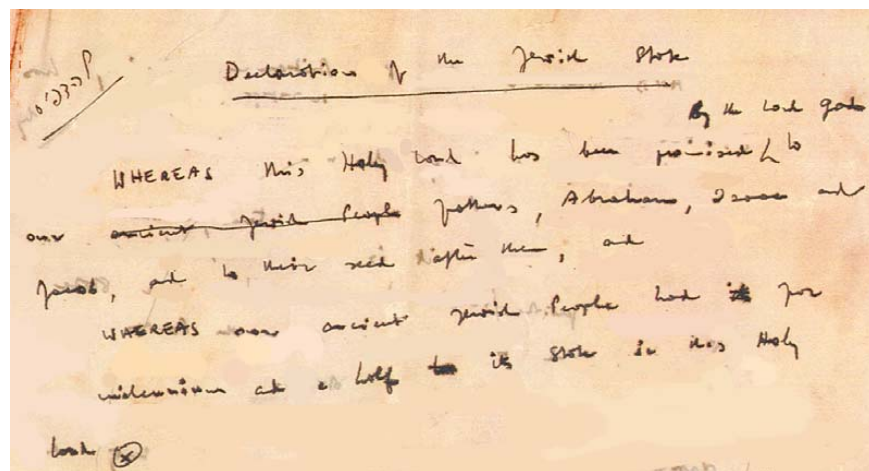 Declaration of the Jewish State
להדפיס
By the Lord God
WHEREAS this Holy Land has been promised to
our ancient Jewish People fathers, Abraham, Isaac and
Jacob, and to their seed after them, and
WHEREAS our ancient Jewish People had for
millennium and a half its State in this Holy
Land